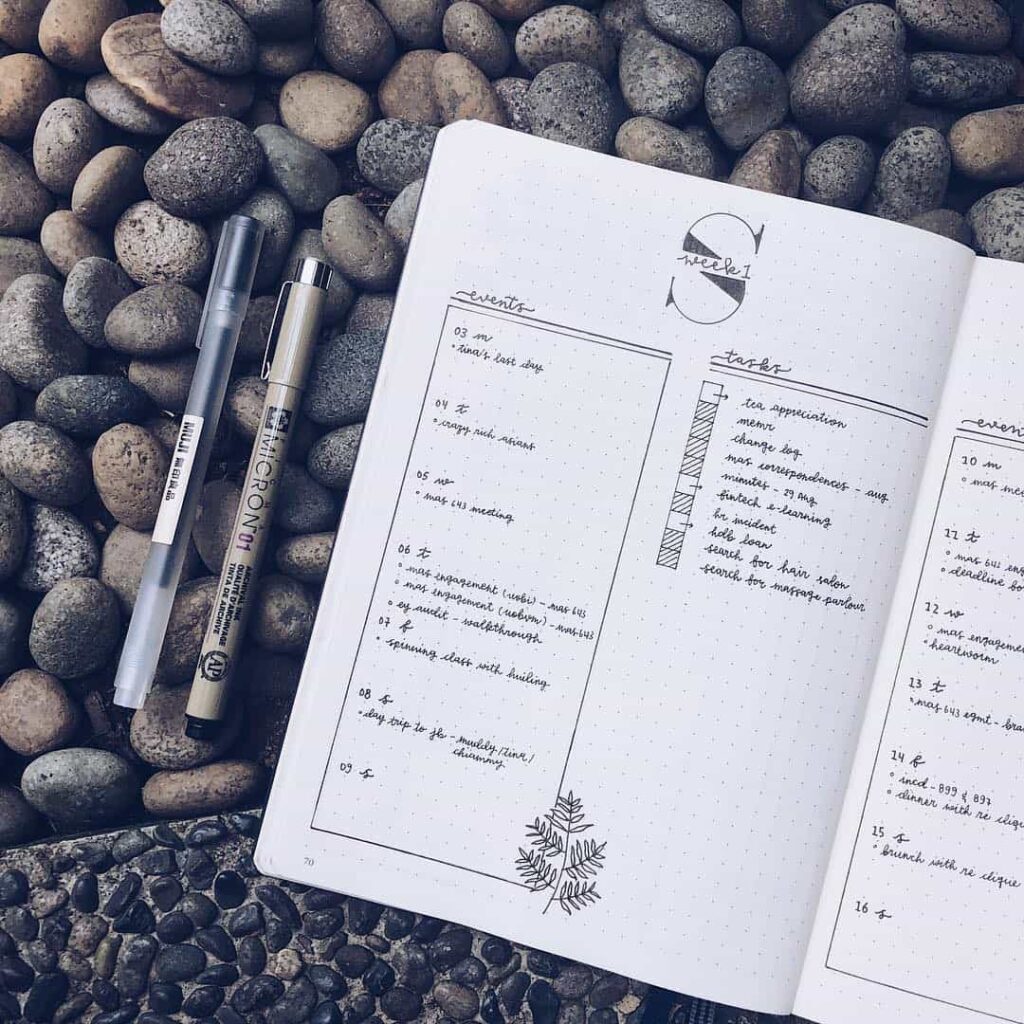 MUJI 無印良品
MICRON 01
ARCHIVAL INK
QUALITE D'ARCHIVAGE
TINTA DE ARCHIVE
AP
S
week 1
events
03 m
• tina's last day
04 t
• crazy rich asians
05 w
• mas 643 meeting
06 t
• mas engagement (uobi) - mas 643
• mas engagement (uobvm) - mas 643
• ey audit - walkthrough
07 f
• spinning class with huiling
08 s
• day trip to jb - muddy/tina/
chiammy
09 s
70
tasks
tea appreciation
memr
change log
mas correspondences - aug
minutes - 29 aug
fintech e-learning
hr incident
hdb loan
search for hair salon
search for massage parlour
10 m
• mas
11 t
• mas 641
• deadline
12 w
• mas engageme
• heartworm
13 t
• mas 643 egmt -
14 f
• incd - 899 & 897
• dinner with re
15 s
• brunch with re clique
16 s